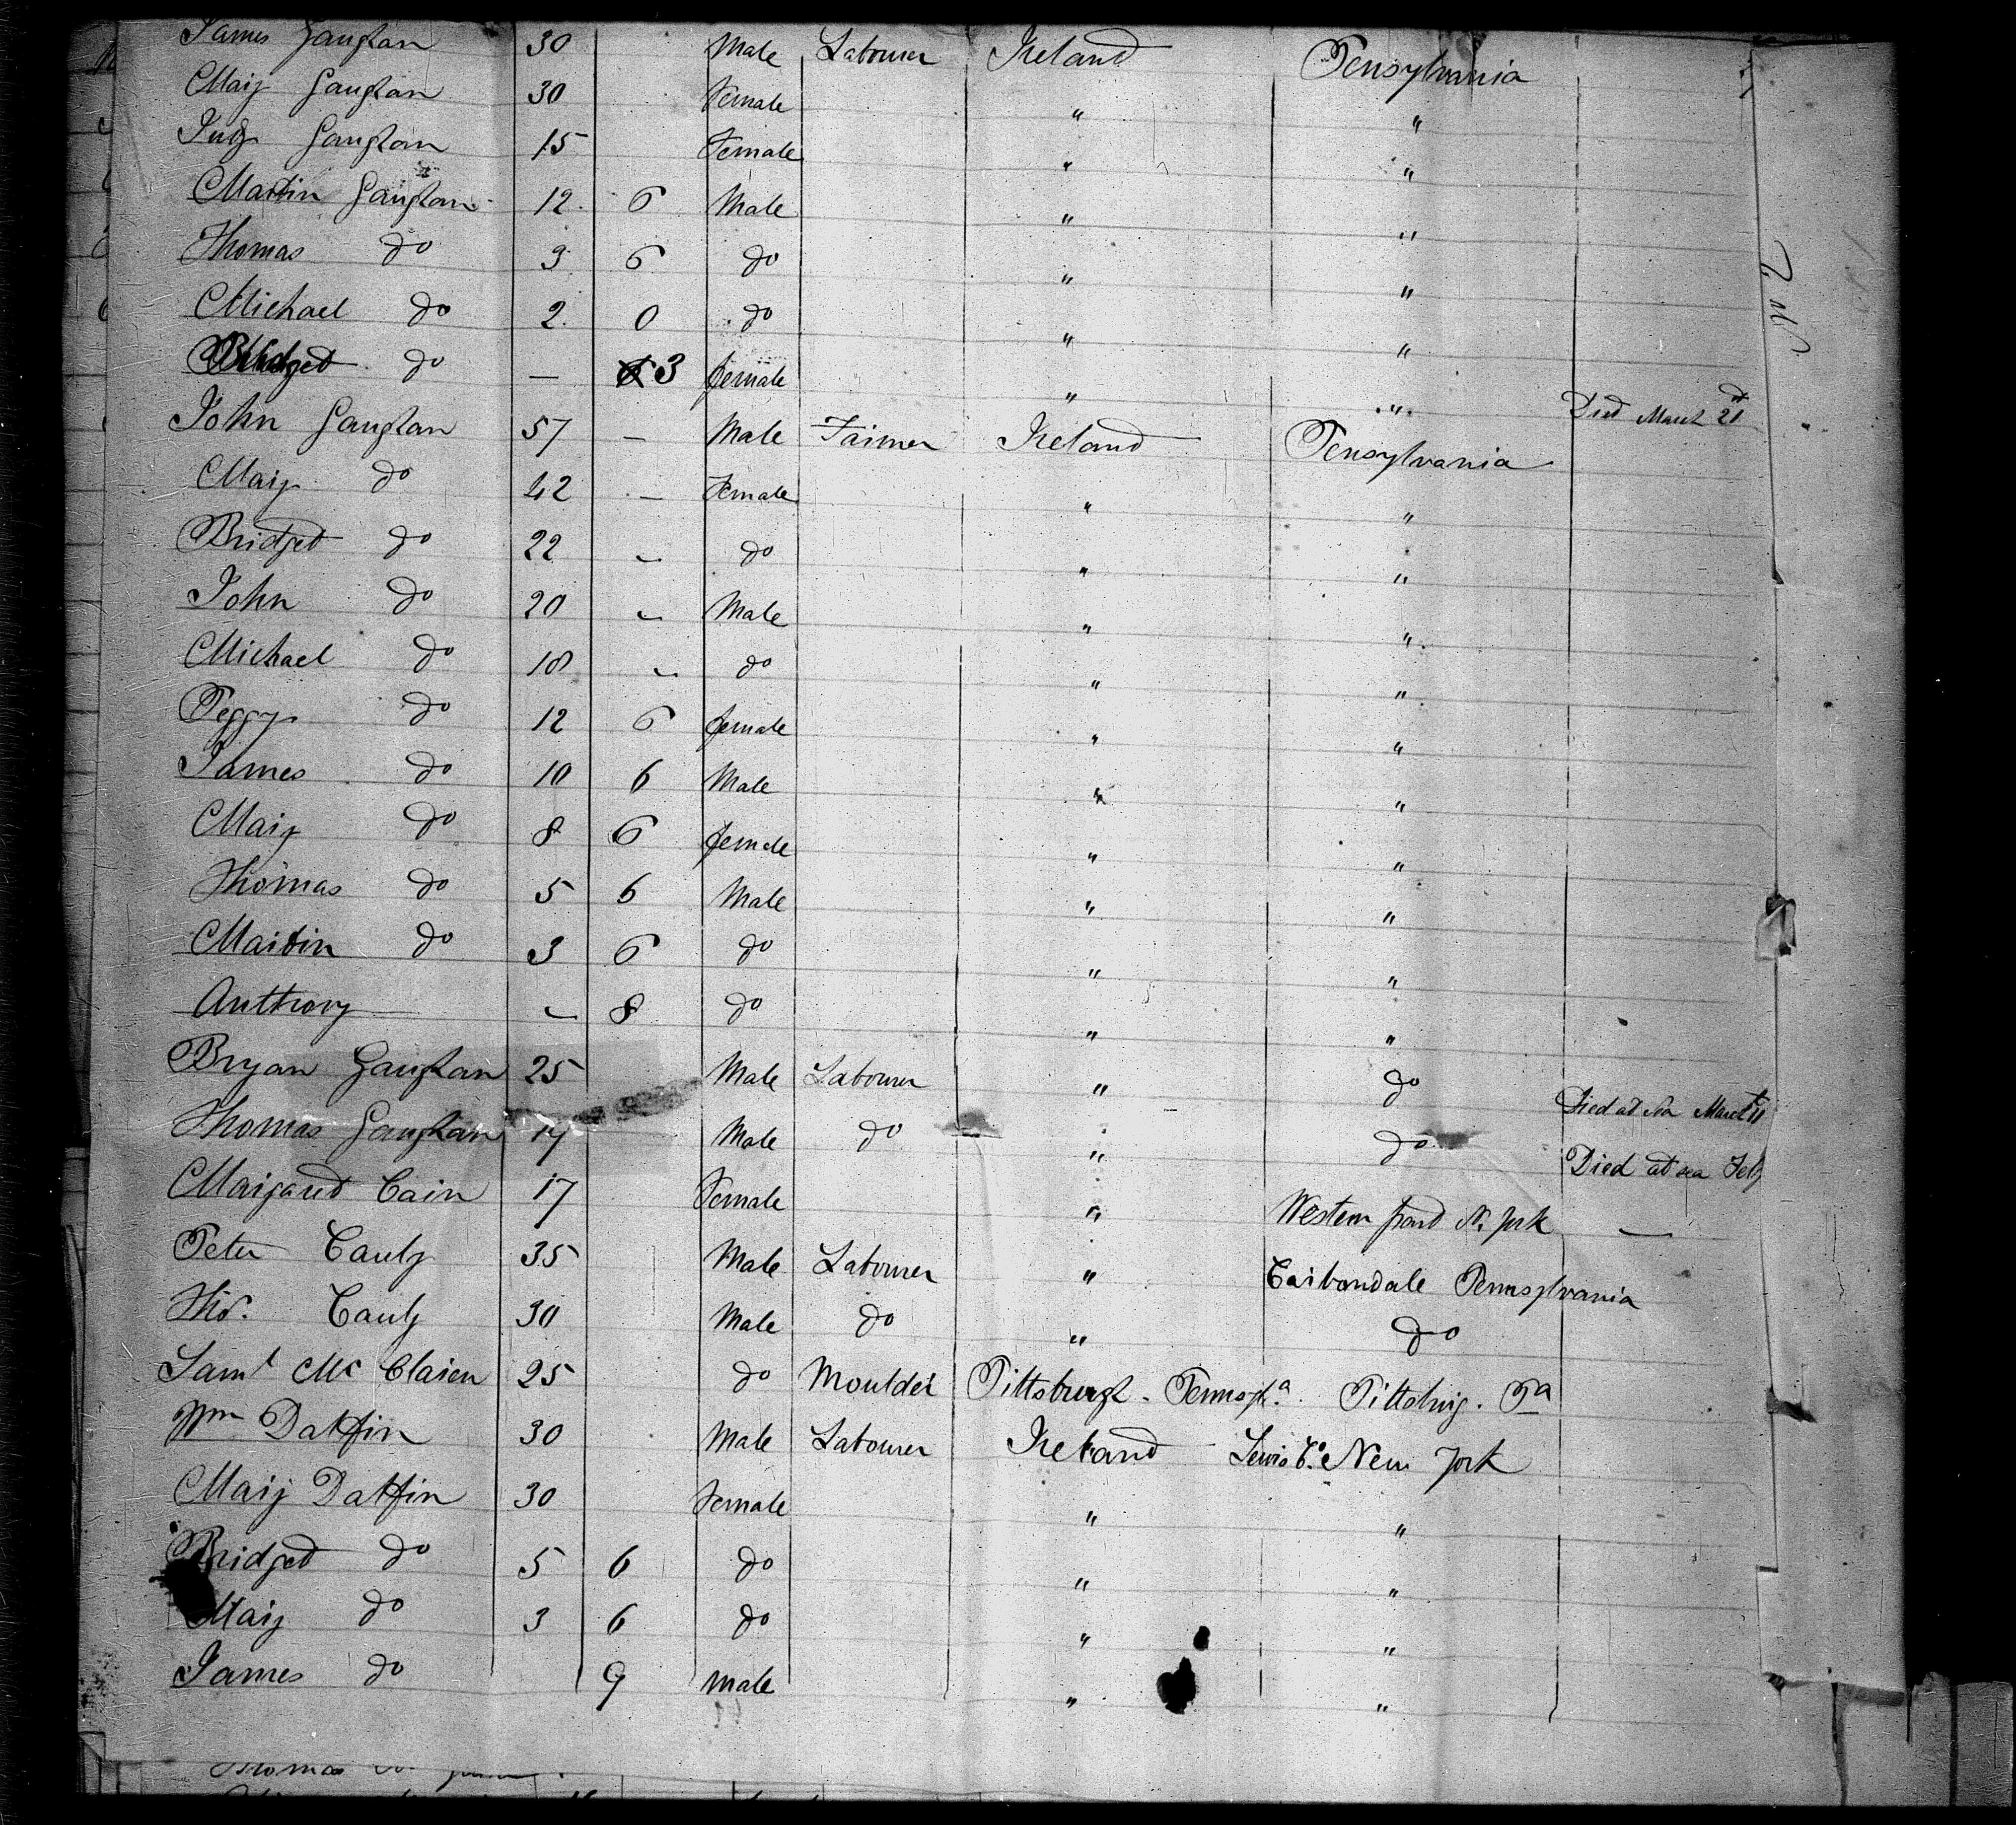 James Gaughan 30 Male Labourer Ireland Pensylvania
Mary Gaughan 30 Female " "
July Gaughan 15 Female " "
Martin Gaughan 12 6 Male " "
Thomas do 3 6 do " "
Michael do 2 0 do " "
Bridget do — 3 female " " Died March 21
John Gaughan 57 — Male Farmer Ireland Pensylvania
Mary do 42 — Female " "
Bridget do 22 " do " "
John do 20 " Male " "
Michael do 18 " do " "
Peggy do 12 6 female " "
James do 10 6 Male " "
Mary do 8 6 female " "
Thomas do 5 6 Male " "
Martin do 3 6 do " "
Anthony — " 8 do " "
Bryan Gaughan 25 Male Labourer " do Died at sea March 11
Thomas Gaughan 17 Male do " do Died at sea Feby
Margaret Cain 17 Female " Western N. York —
Peter Cauly 35 Male Labourer " Carbondale Pennsylvania
Thos. Cauly 30 Male do " do
Saml Mc Claren 25 do Moulder Pittsburgh - Pennsya. Pittsburg. Pa
Wm Datfin 30 Male Labourer Ireland Lewis Co. New York
Mary Datfin 30 Female " "
Bridget do 5 6 do " "
Mary do 3 6 do " "
James do 9 male " "
Thomas